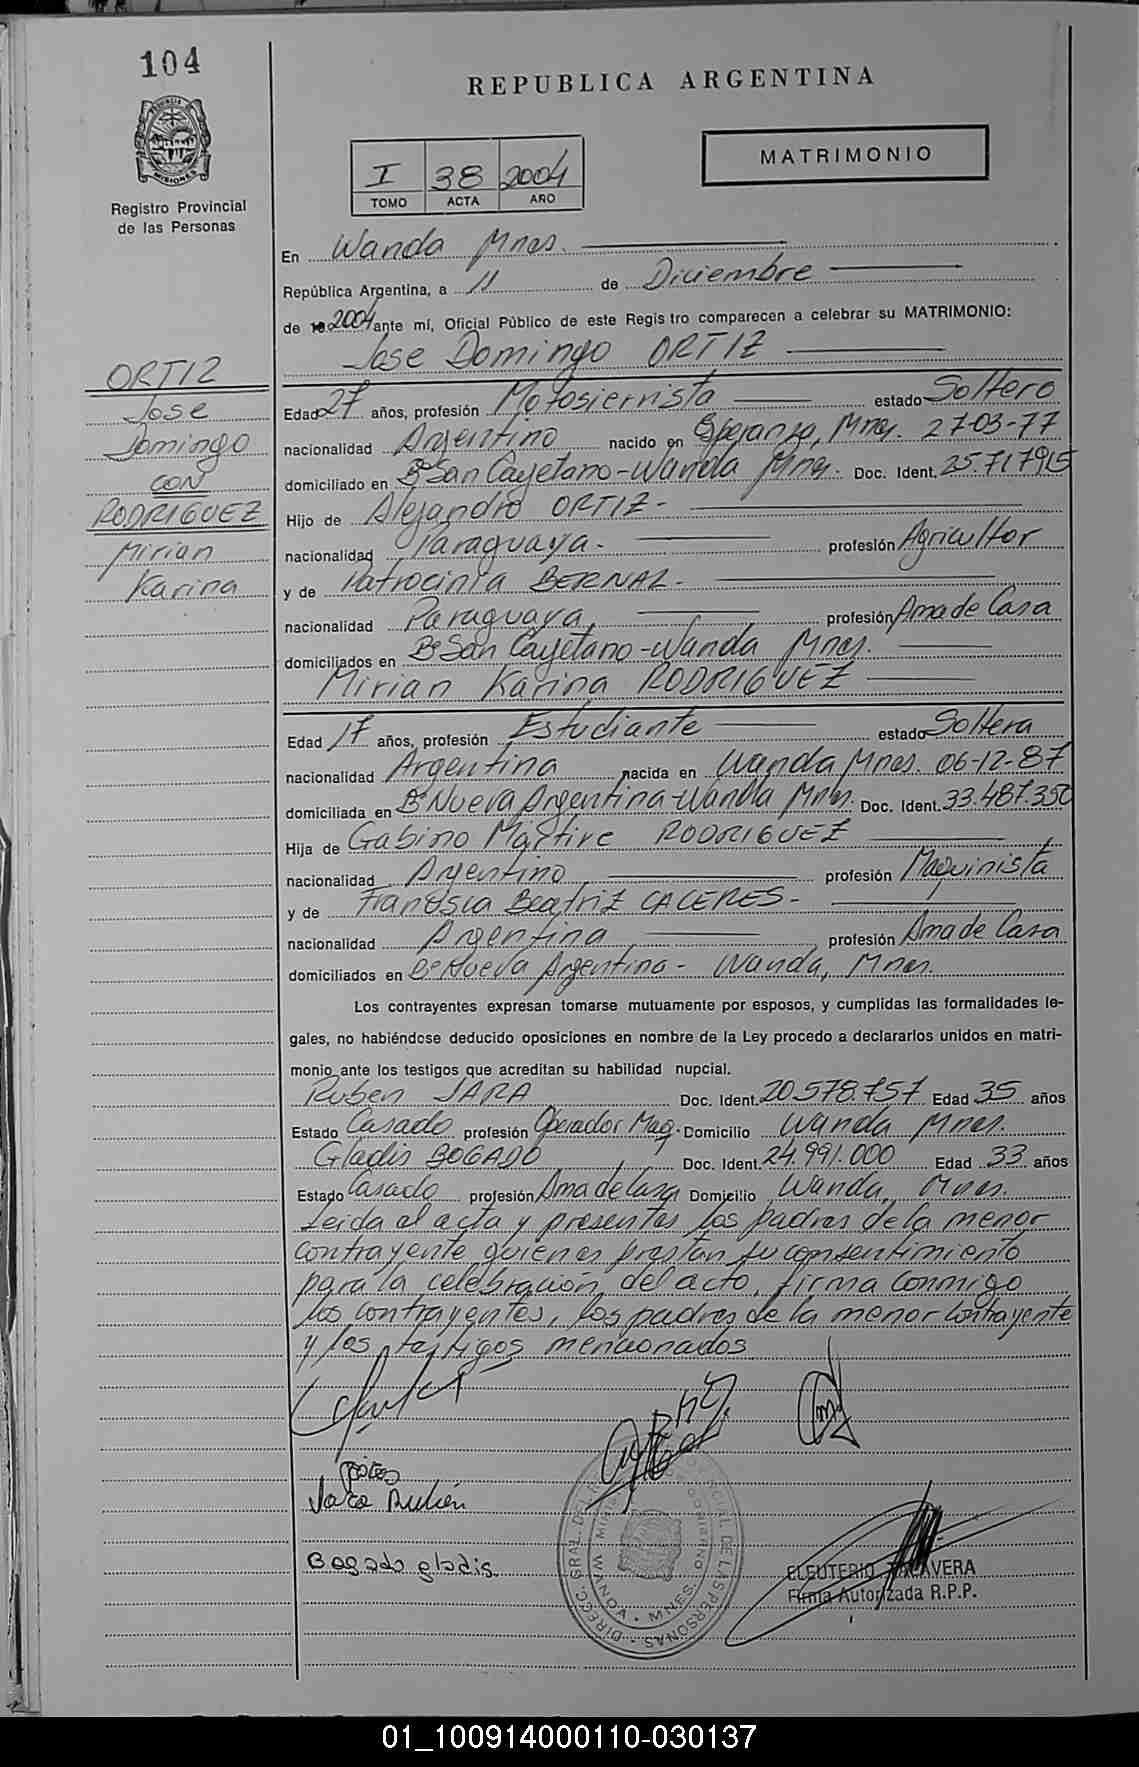 104
REPUBLICA ARGENTINA
PROVINCIA DE MISIONES
Registro Provincial
de las Personas
I 38 2004
TOMO ACTA AÑO
MATRIMONIO
En Wanda Mnes.
República Argentina, a 11 de Diciembre
de 2004 ante mí, Oficial Público de este Registro comparecen a celebrar su MATRIMONIO:
Jose Domingo ORTIZ
ORTIZ
Jose
Domingo
CON
RODRIGUEZ
Mirian
Karina
Edad 27 años, profesión Motosierrista estado Soltero
nacionalidad Argentino nacido en Esperanza, Mnes. 27-03-77
domiciliado en Bº San Cayetano - Wanda Mnes. Doc. Ident. 25.717.915
Hijo de Alejandro ORTIZ -
nacionalidad Paraguaya - profesión Agricultor
y de Patrocinia BERNAL -
nacionalidad Paraguaya, profesión Ama de Casa
domiciliados en Bº San Cayetano - Wanda Mnes.
Mirian Karina RODRIGUEZ
Edad 17 años, profesión Estudiante estado Soltera
nacionalidad Argentina nacida en Wanda Mnes. 06-12-87
domiciliada en Bº Nueva Argentina - Wanda Mnes. Doc. Ident. 33.487.350
Hija de Gabino Martire RODRIGUEZ
nacionalidad Argentino profesión Maquinista
y de Francisca Beatriz CACERES -
nacionalidad Argentina profesión Ama de Casa
domiciliados en Bº Nueva Argentina - Wanda, Mnes.
Los contrayentes expresan tomarse mutuamente por esposos, y cumplidas las formalidades le-
gales, no habiéndose deducido oposiciones en nombre de la Ley procedo a declararlos unidos en matri-
monio ante los testigos que acreditan su habilidad nupcial.
Ruben JARA Doc. Ident. 20.578.757 Edad 35 años
Estado Casado profesión Operador Maq. Domicilio Wanda Mnes.
Gladis BOGADO Doc. Ident. 24.991.000 Edad 33 años
Estado Casado profesión Ama de Casa Domicilio Wanda, Mnes.
Leida el acta y presentes los padres de la menor
contrayente quienes prestan su consentimiento
para la celebración del acto, firma conmigo
los contrayentes, los padres de la menor contrayente
y los testigos mencionados
Jara Rubén
Bogado gladis
DIRECC. GRAL. DEL REG. PROVINCIAL DE LAS PERSONAS
WANDA - MNES.
ELEUTERIO TALAVERA
Firma Autorizada R.P.P.
01_100914000110-030137